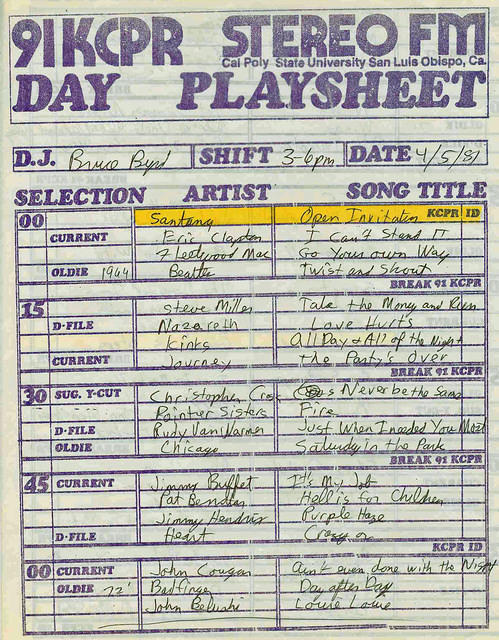 91 KCPR STEREO FM
Cal Poly State University San Luis Obispo, Ca.
DAY PLAYSHEET
D.J. Bruce Byrd SHIFT 3-6pm DATE 4/5/81
SELECTION ARTIST SONG TITLE
00 Santana Open Invitation KCPR ID
CURRENT Eric Clapton I Can't Stand It
Fleetwood Mac Go Your own Way
OLDIE 1964 Beatles Twist and Shout
BREAK 91 KCPR
15 Steve Miller Take the Money and Run
D-FILE Nazareth Love Hurts
Kinks All Day & All of the Night
CURRENT Journey the Party's Over
BREAK 91 KCPR
30 SUG. Y-CUT Christopher Cross Never be the Same
Pointer Sisters Fire
D-FILE Rudy Van Warmer Just When I needed You Most
OLDIE Chicago Saturday in the Park
BREAK 91 KCPR
45 CURRENT Jimmy Buffet It's My Job
Pat Benatar Hell is for Children
Jimmy Hendrix Purple Haze
D-FILE Heart Crazy on
KCPR ID
00 CURRENT John Cougar Ain't even done with the Night
OLDIE 72' Badfinger Day after Day
John Belushi Louie Louie